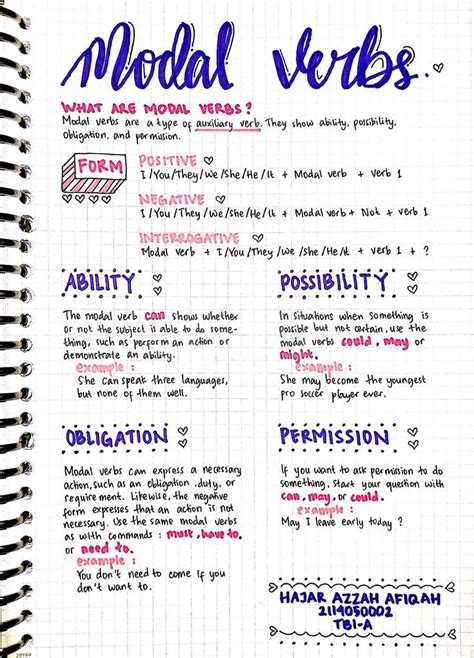 Modal Verbs.
WHAT ARE MODAL VERBS?
Modal verbs are a type of auxiliary verb. They show ability, possibility,
obligation, and permission.
FORM
POSITIVE
I/You/They/We/She/He/It + Modal verb + verb 1
NEGATIVE
I/You/They/We/She/He/It + Modal verb + Not + verb 1
INTERROGATIVE
Modal verb + I/You/They/We/She/He/It + verb 1 + ?
ABILITY
The modal verb can shows whether
or not the subject is able to do some-
thing, such as perform an action or
demonstrate an ability.
example :
She can speak three languages,
but none of them well.
POSSIBILITY
In situations when something is
possible but not certain, use the
modal verbs could, may or
might.
example :
She may become the youngest
pro soccer player ever.
OBLIGATION
Modal verbs can express a necessary
action, such as an obligation, duty, or
requirement. Likewise, the negative
form expresses that an action is not
necessary. Use the same modal verbs
as with commands : must, have to,
or need to.
example :
You don't need to come if you
don't want to.
PERMISSION
If you want to ask permission to do
something, start your question with
can, may, or could.
example :
May I leave early today ?
HAJAR AZZAH AFIQAH
2114050002
TBI-A